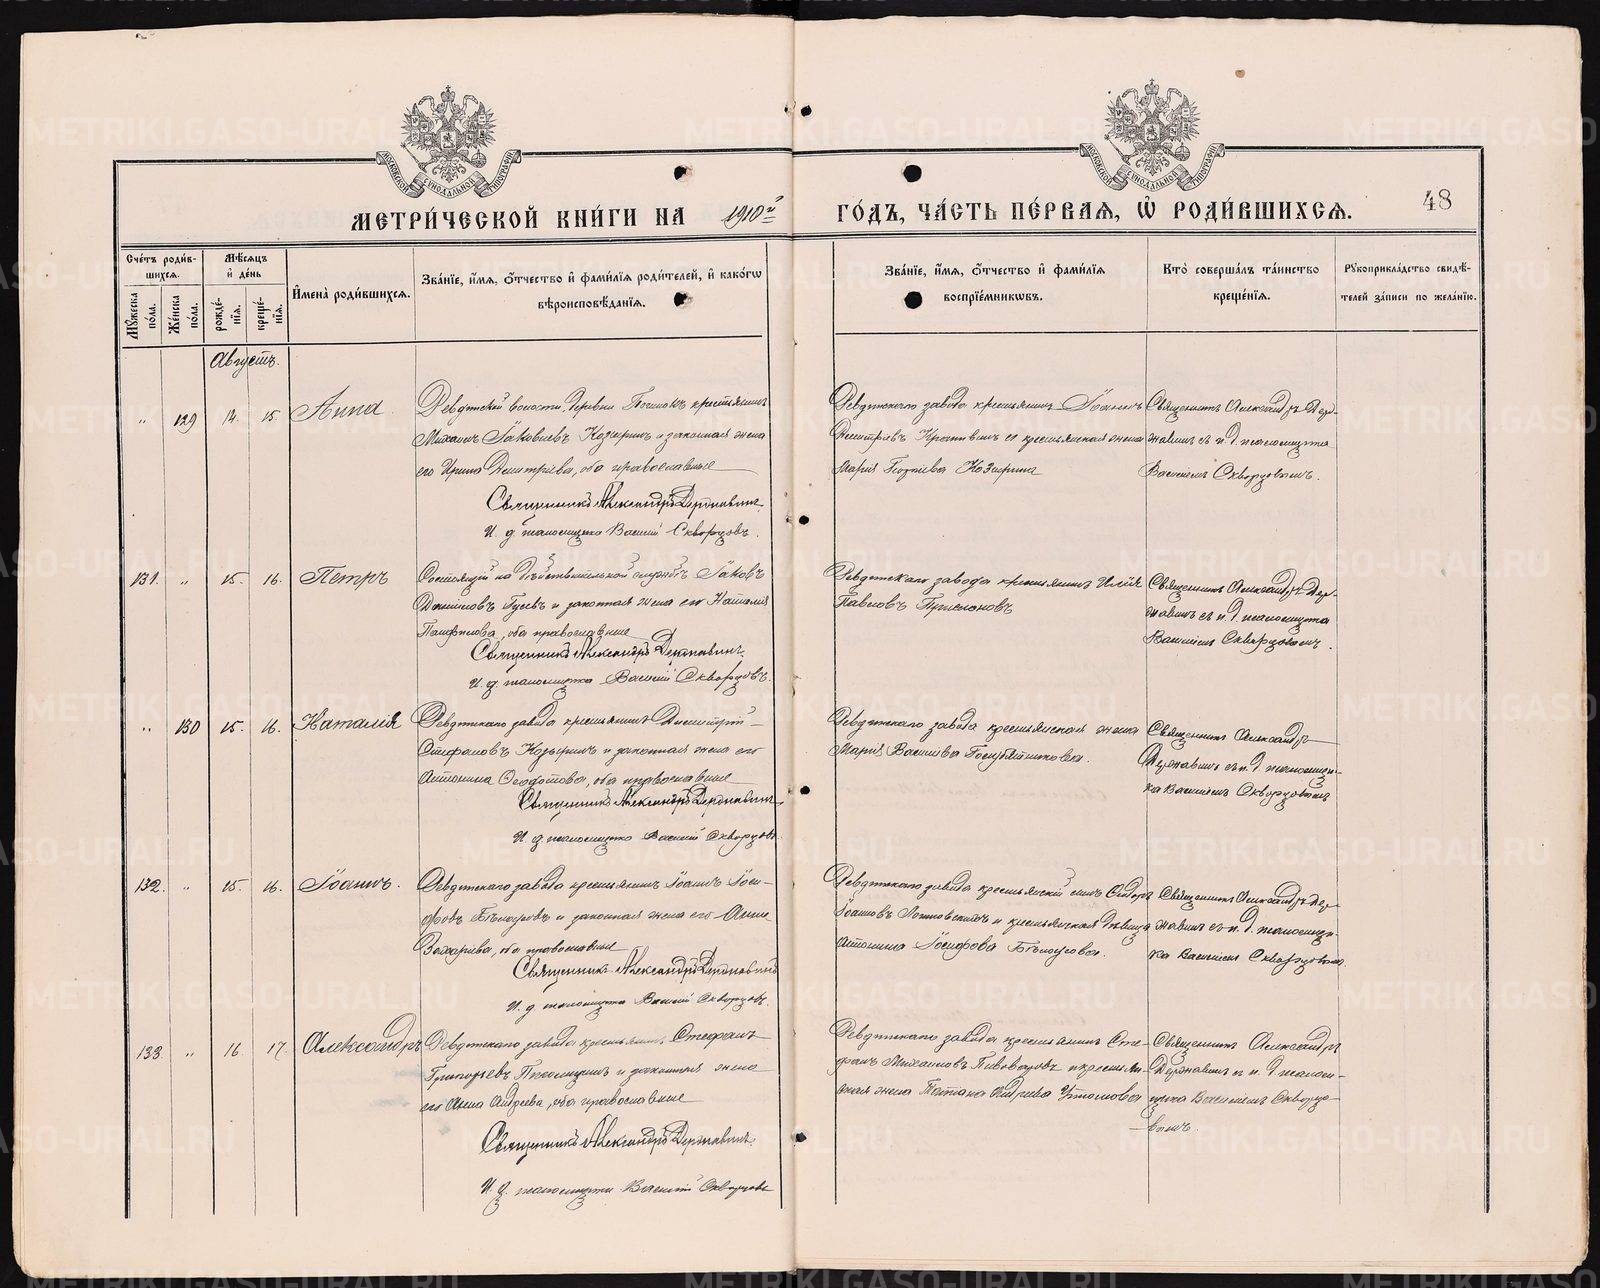 МОСКОВСКОЙ СѴНОДАЛЬНОЙ ТИПОГРАФІИ
МОСКОВСКОЙ СѴНОДАЛЬНОЙ ТИПОГРАФІИ
МЕТРИ́ЧЕСКОЙ КНИ́ГИ НА 1910й ГО́ДЪ, ЧА́СТЬ ПЕ́РВАЯ, Ѡ҆ РОДИ́ВШИХСЯ.
48
Сче́тъ роди́вшихся.
Мꙋ́жеска по́ла.
Же́нска по́ла.
Мѣ́сяцъ и҆ де́нь
рожде́нїя.
креще́нїя.
И҆мена̀ роди́вшихся.
Зва́нїе, и҆́мя, ѻ҆́тчество и҆ фами́лїя роди́телей, и҆ како́гѡ
вѣроисповѣ́данїя.
Зва́нїе, и҆́мя, ѻ҆́тчество и҆ фами́лїя
воспрїе́мникѡвъ.
Кто̀ соверша́лъ та́инство
креще́нїя.
Рꙋкоприкла́дство свидѣ́-
телей за́писи по жела́нїю.
Августъ.
" 129 14. 15. Анна.
Ревдинской волости, деревни Починокъ крестьянинъ
Михаилъ Іаковлевъ Козыринъ и законная жена
его Ирина Димитріева, оба православные
Священникъ Александръ Державинъ.
И. д. псаломщика Василій Скворцовъ.
Ревдинскаго завода крестьянинъ Іоаннъ
Димитріевъ и крестьянская жена
Марія Козырина
Священникъ Александръ Дер-
жавинъ съ и. д. псаломщика
Василіемъ Скворцовымъ.
131. " 15. 16. Петръ
Состоящій на дѣйствительной службѣ Іаковъ
Даниловъ Гусевъ и законная жена его Наталія
Памфилова, оба православные
Священникъ Александръ Державинъ.
И. д. псаломщика Василій Скворцовъ.
Ревдинскаго завода крестьянинъ Илія
Павловъ
Священникъ Александръ Дер-
жавинъ съ и. д. псаломщика
Василіемъ Скворцовымъ.
" 130 15. 16. Наталія
Ревдинскаго завода крестьянинъ Димитрій
Стефановъ Козыринъ и законная жена его
Антонина Ѳеодотова, оба православные
Священникъ Александръ Державинъ
И. д. псаломщика Василій Скворцовъ.
Ревдинскаго завода крестьянская жена
Марія Васильева
Священникъ Александръ
Державинъ съ и. д. псаломщи-
ка Василіемъ Скворцовымъ
132. " 15. 16. Іоаннъ.
Ревдинскаго завода крестьянинъ Іоаннъ Іоси-
фовъ Бѣлоусовъ и законная жена его Анна
Захаріева, оба православные
Священникъ Александръ Державинъ
И. д. псаломщика Василій Скворцовъ.
Ревдинскаго завода крестьянскій сынъ
Іоанновъ и крестьянская дѣвица
Антонина Іосифова Бѣлоусова.
Священникъ Александръ Дер-
жавинъ съ и. д. псаломщи-
ка Василіемъ Скворцовымъ.
133. " 16. 17. Александръ
Ревдинскаго завода крестьянинъ Стефанъ
Григорьевъ и законная жена
его Анна Андреева, оба православные
Священникъ Александръ Державинъ.
И. д. псаломщика Василій Скворцовъ
Ревдинскаго завода крестьянинъ Сте-
фанъ Михайловъ Пивоваровъ и крестьян-
ская жена Татіана Андреева
Священникъ Александръ
Державинъ съ и. д. псалом-
щика Василіемъ Скворцо-
вымъ.
METRIKI.GASO-URAL.RU